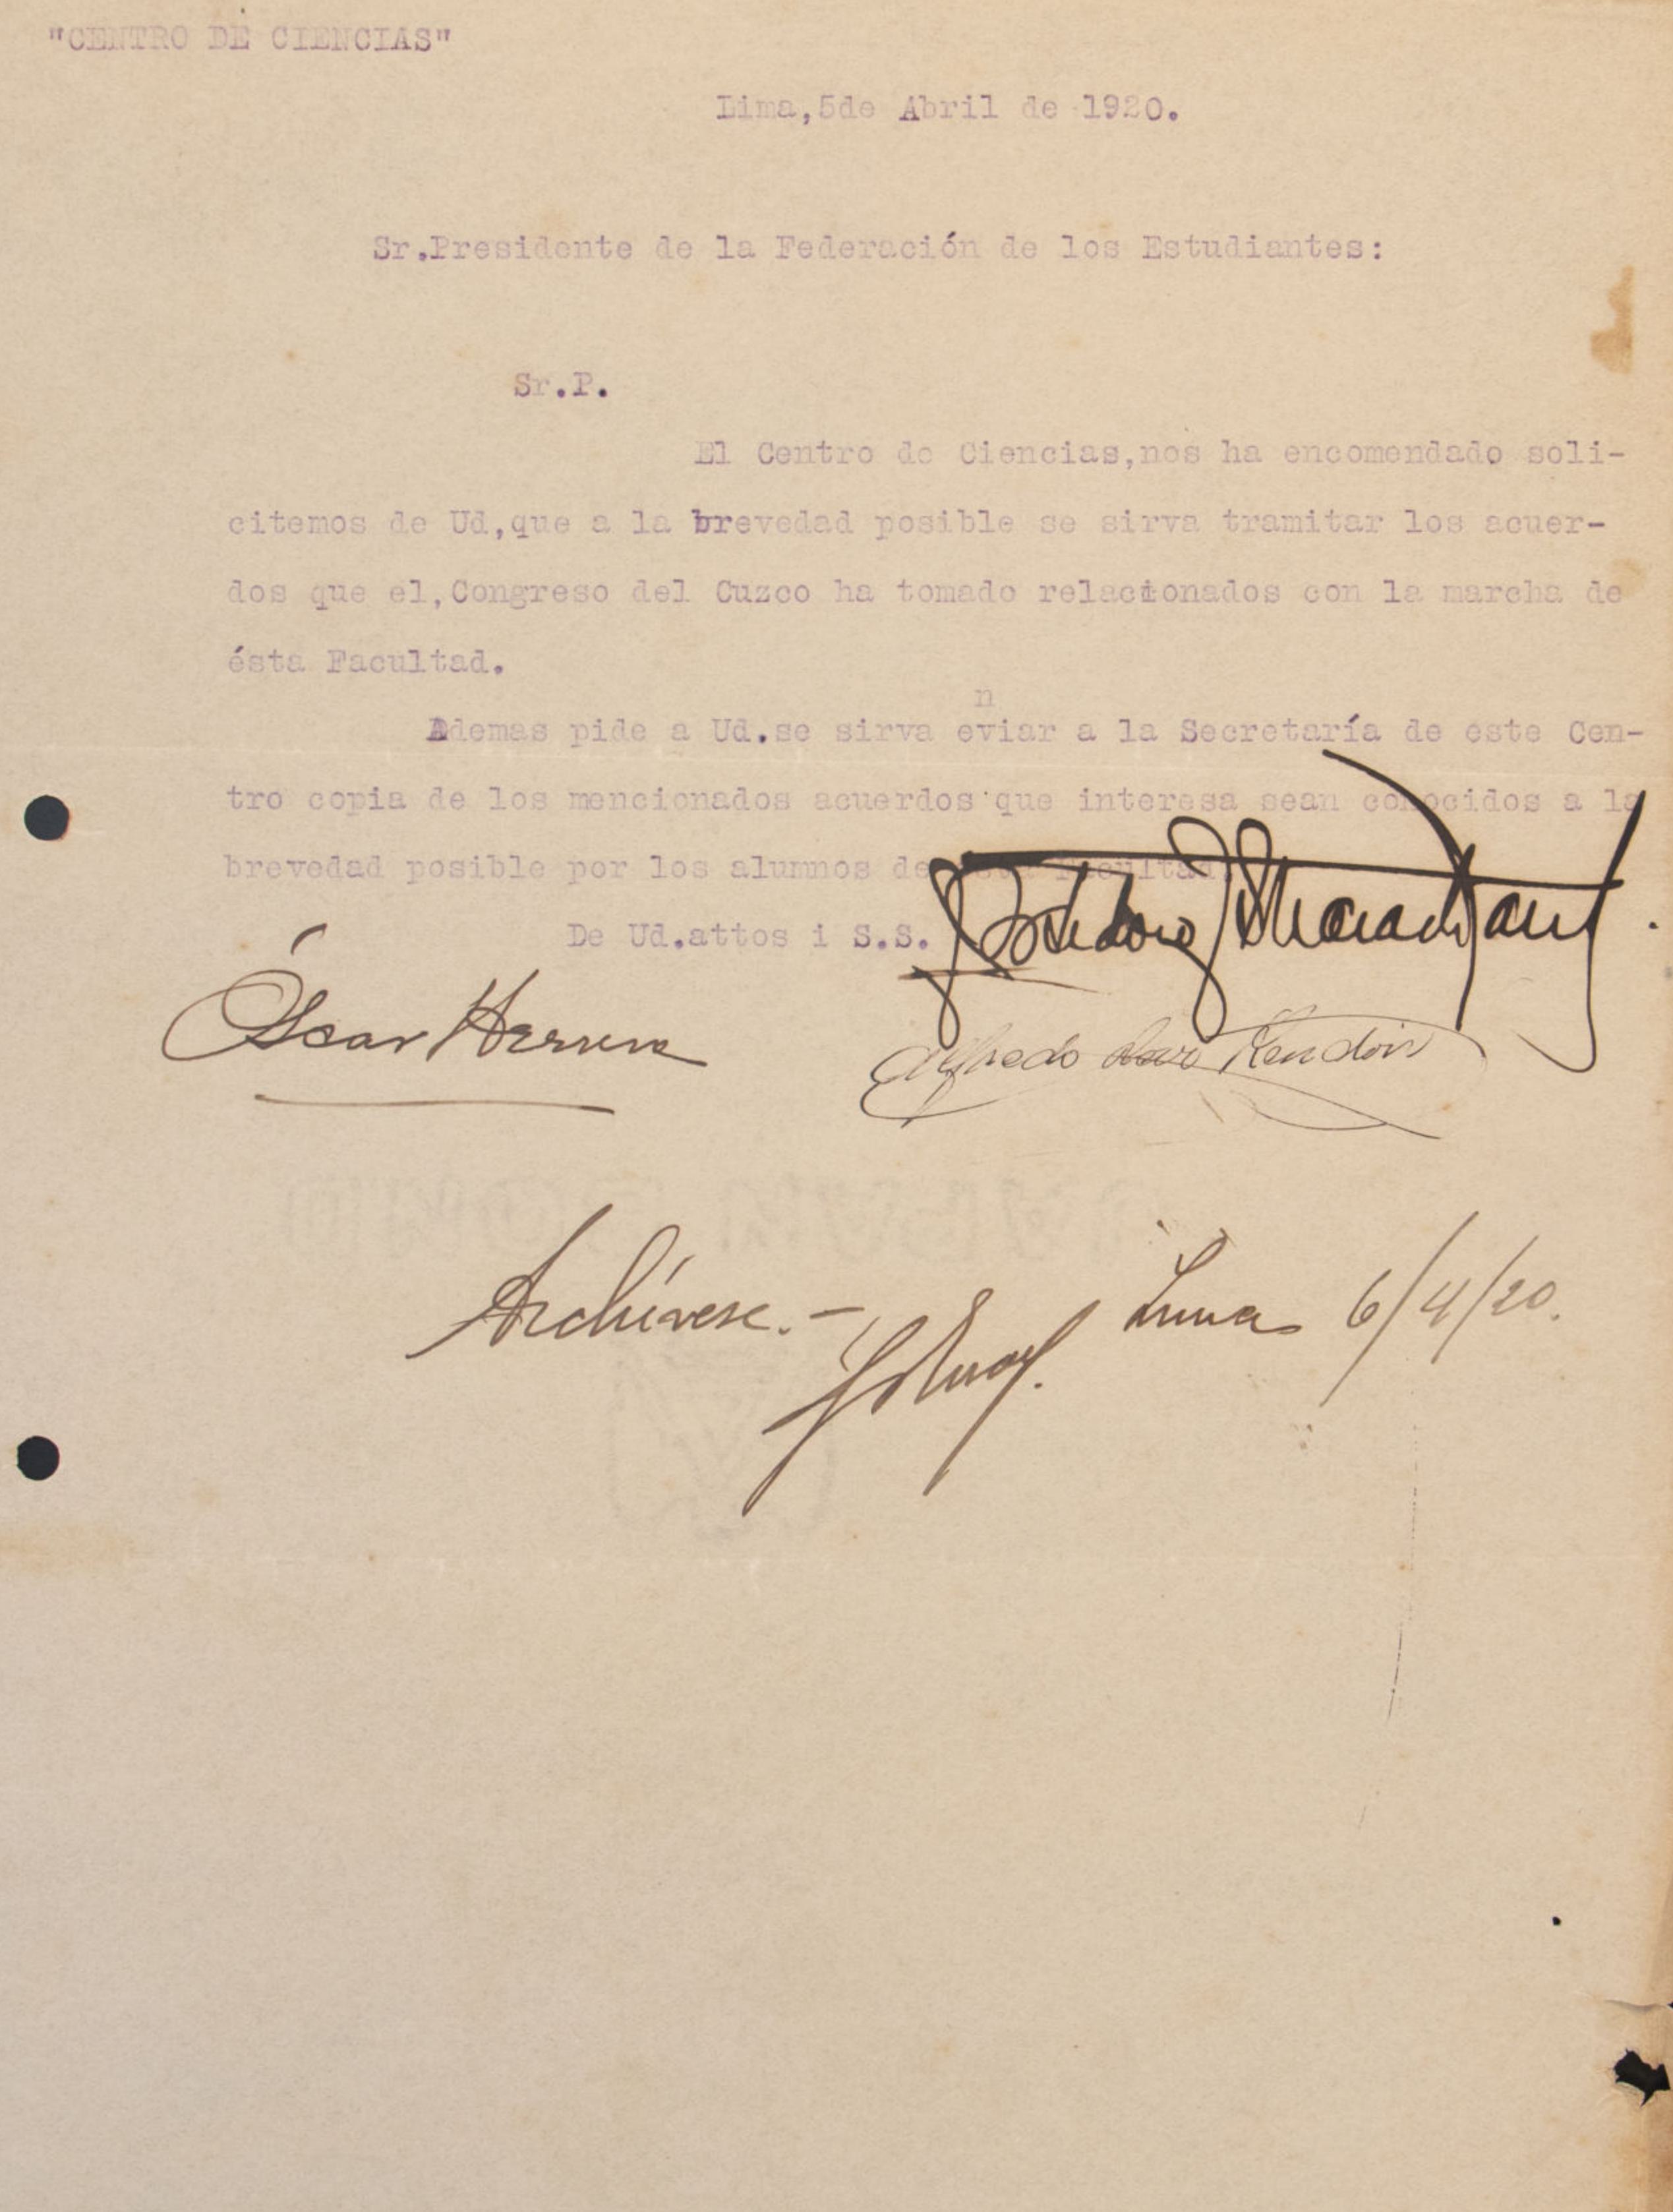 "CENTRO DE CIENCIAS"
Lima,5de Abril de 1920.
Sr.Presidente de la Federación de los Estudiantes:
Sr.P.
El Centro de Ciencias,nos ha encomendado soli-
citemos de Ud,que a la brevedad posible se sirva tramitar los acuer-
dos que el,Congreso del Cuzco ha tomado relacionados con la marcha de
ésta Facultad.
n
Ademas pide a Ud.se sirva eviar a la Secretaría de este Cen-
tro copia de los mencionados acuerdos que interesa sean conocidos a la
brevedad posible por los alumnos de esta Facultad.
De Ud.attos i S.S.
Óscar Herrera
Alfredo Rendón
Archívese.- Lima 6/4/20.